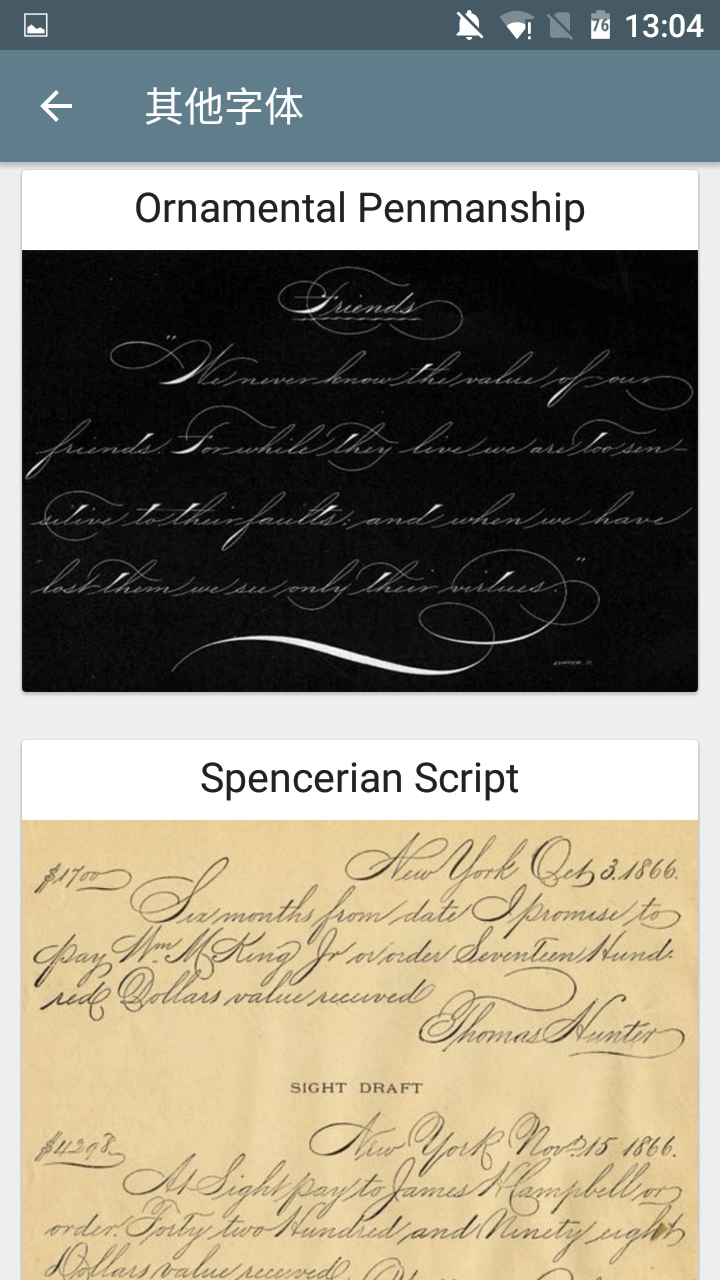 76 13:04
其他字体
Ornamental Penmanship
Friends
"We never know the value of our
friends. For while they live we are too sen-
sitive to their faults; and when we have
lost them we see only their virtues."
Spencerian Script
$1700 New York Oct 3. 1866.
Six months from date I promise to
pay Wm McKing Jr or order Seventeen Hund-
red Dollars value received
Thomas Hunter
SIGHT DRAFT
$4298 New York Nov 15 1866.
At Sight pay to James H Campbell or
order Forty two Hundred and Ninety eight
Dollars value received